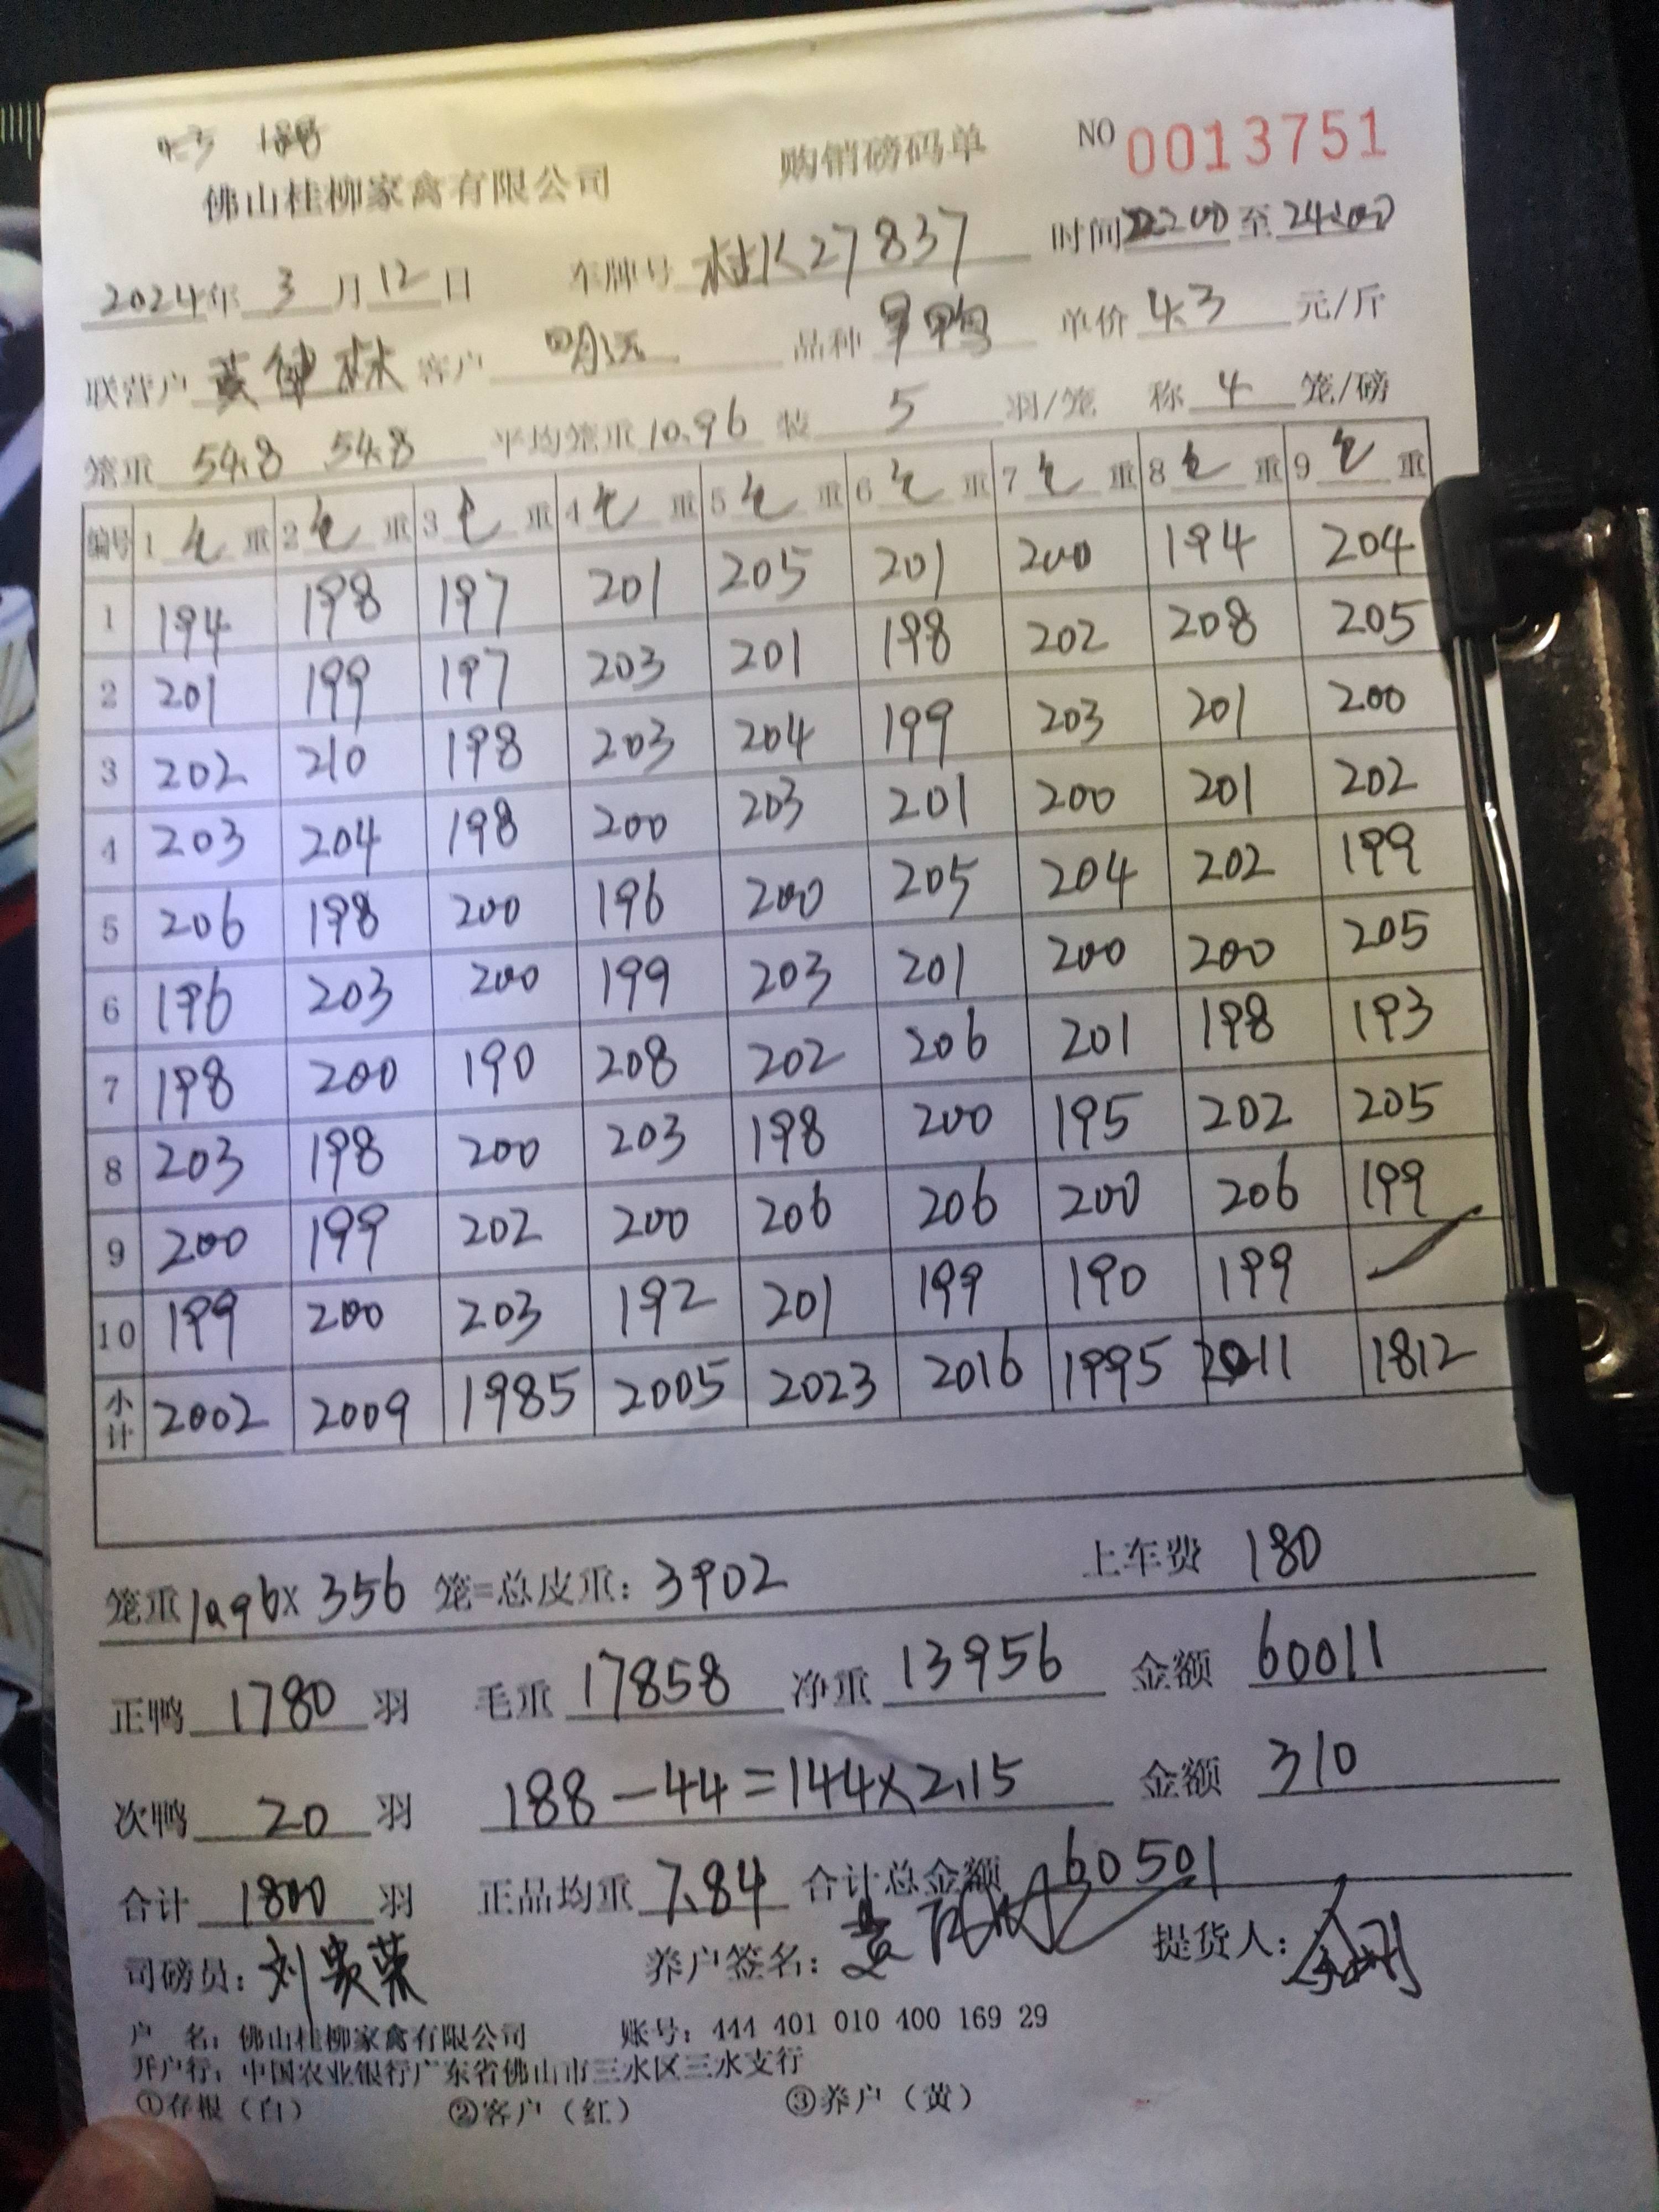 购销磅码单 NO 0013751
佛山桂柳家禽有限公司
2024年 3 月 12 日 车牌号 桂K27837 时间 2200 至 2400
联营户 客户 明远 品种 旱鸭 单价 4.3 元/斤
笼重 54.8 54.8 平均笼重 10.96 装 5 羽/笼 称 4 笼/磅
编号 1 毛 重 2 毛 重 3 毛 重 4 毛 重 5 毛 重 6 毛 重 7 毛 重 8 毛 重 9 毛 重
1 194 198 197 201 205 201 200 194 204
2 201 199 197 203 201 198 202 208 205
3 202 210 198 203 204 199 203 201 200
4 203 204 198 200 203 201 200 201 202
5 206 198 200 196 200 205 204 202 199
6 196 203 200 199 203 201 200 200 205
7 198 200 190 208 202 206 201 198 193
8 203 198 200 203 198 200 195 202 205
9 200 199 202 200 206 206 200 206 199
10 199 200 203 192 201 199 190 199
小计 2002 2009 1985 2005 2023 2016 1995 2011 1812
笼重 10.96x 356 笼=总皮重: 3902 上车费 180
正鸭 1780 羽 毛重 17858 净重 13956 金额 60011
次鸭 20 羽 188-44=144x2.15 金额 310
合计 1800 羽 正品均重 7.84 合计总金额 60501
司磅员: 刘贵荣 养户签名: 提货人:
户 名: 佛山桂柳家禽有限公司 账号: 444 401 010 400 169 29
开户行: 中国农业银行广东省佛山市三水区三水支行
①存根(白) ②客户(红) ③养户(黄)